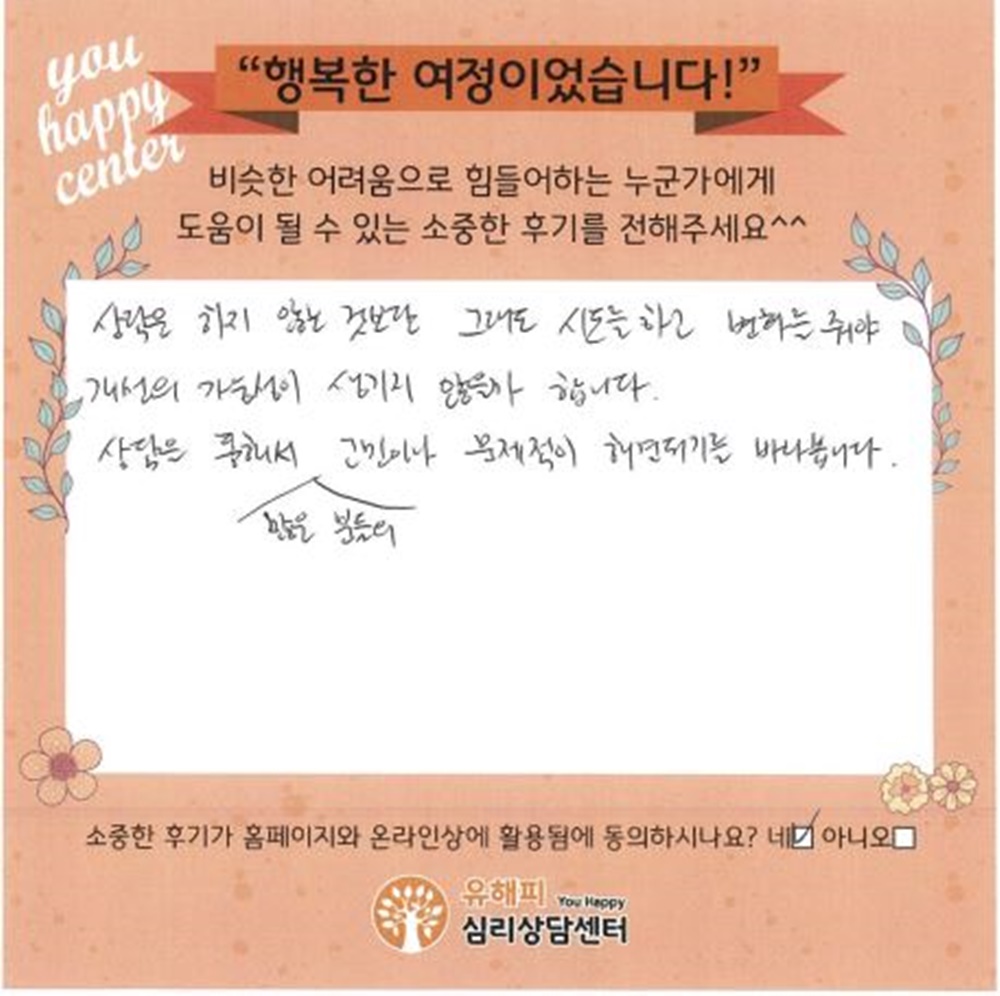 you
happy
center
“행복한 여정이었습니다!”
비슷한 어려움으로 힘들어하는 누군가에게
도움이 될 수 있는 소중한 후기를 전해주세요^^
상담은 하지 않는 것보단 그래도 시도를 하고 변화를 줘야
개선의 가능성이 생기지 않을까 합니다.
상담은 통해서 고민이나 문제점이 해결되기를 바라봅니다.
많은 분들의
소중한 후기가 홈페이지와 온라인상에 활용됨에 동의하시나요? 네☑ 아니오☐
유해피 You Happy
심리상담센터